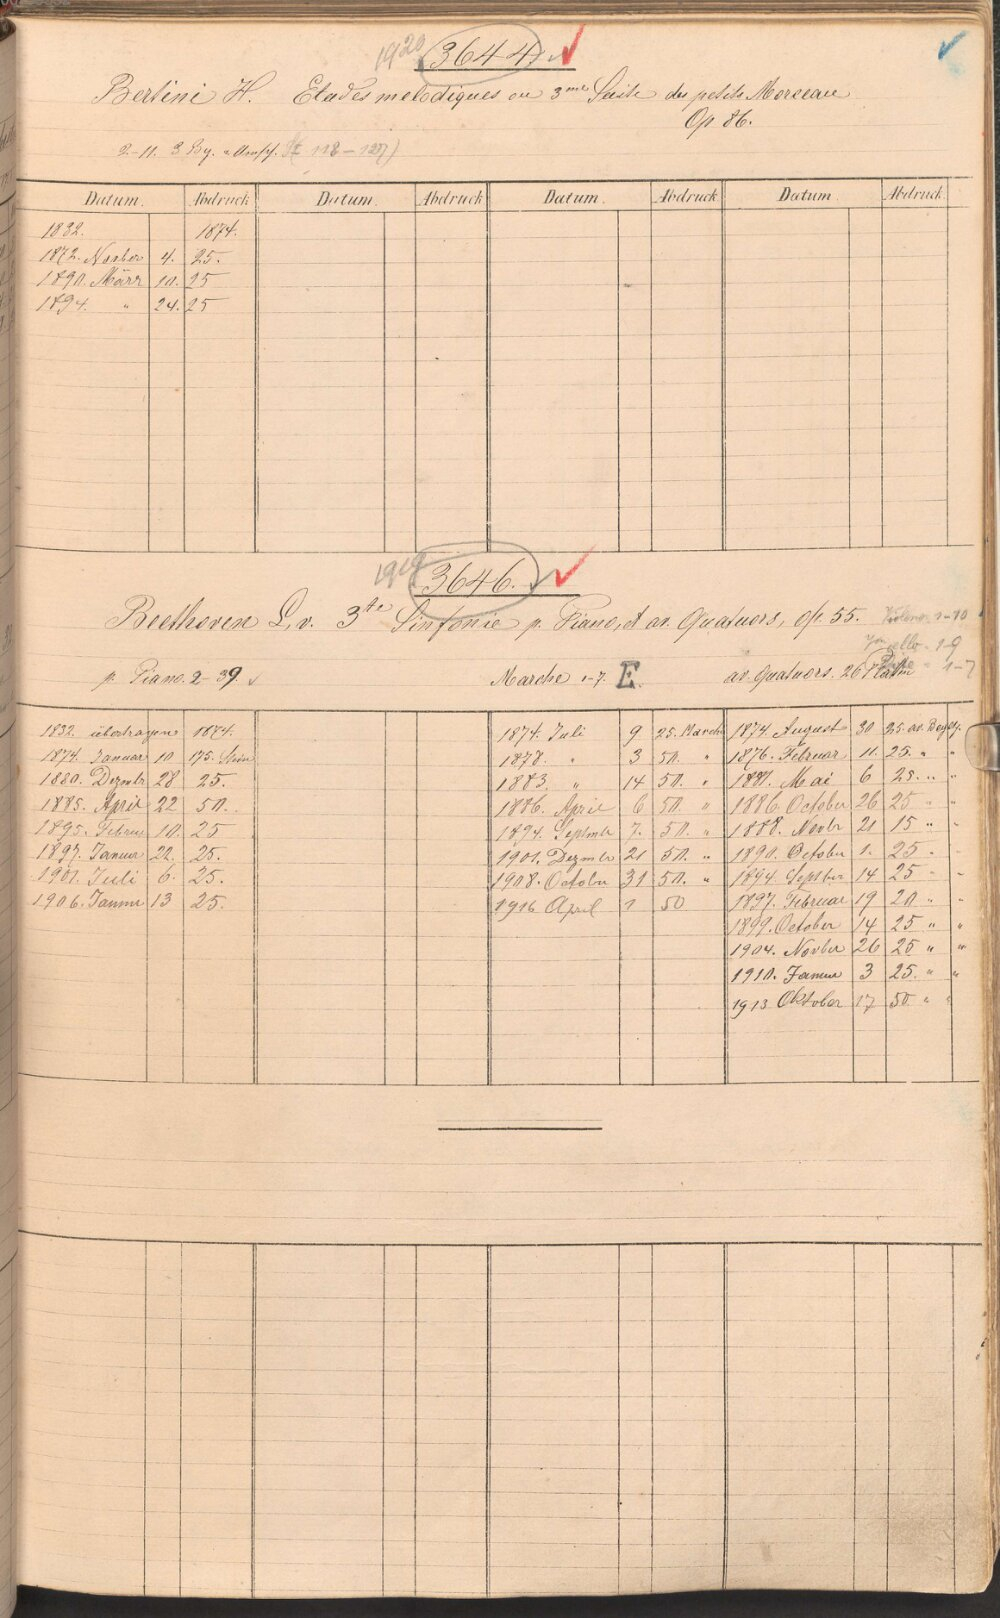 1920 3644
Bertini H. Etudes melodiques ou 3me Suite des petits Morceaux
Op. 86.
2-11. 3 Bg. u. Umschl. 118-127)
Datum. Abdruck Datum. Abdruck Datum. Abdruck Datum. Abdruck.
1832. 1874.
1872. Novber 4. 25.
1890. März 10. 25
1894. " 24. 25
1919 3646.
Beethoven L. v. 3te Sinfonie p. Piano, et av. Quatuors, op. 55. Violino 1-10
cello 1-9
p. Piano. 2-39. Marche 1-7. E. av. Quatuors. 26 Platten 1-7
1832 übertragen 1874.
1874. Januar 10 175. Stein
1880. Dezmbr 28 25.
1885. April 22 50.
1895. Februr 10. 25
1897. Januar 22. 25.
1901. Juli 6. 25.
1906. Januar 13 25.
1874. Juli 9 25. Marche
1878. " 3 50. "
1883. " 14 50. "
1886. April 6 50. "
1894. Septmbr 7. 50. "
1901. Dezmbr 21 50. "
1908. October 31 50. "
1916 April 1 50
1874. August 30 25. av. Begltg.
1876. Februar 11. 25. " "
1881. Mai 6 25. " "
1886. October 26 25 " "
1888. Novbr 21 15 " "
1890. October 1. 25 " "
1894. Septber 14 25 " "
1897. Februar 19 20 " "
1899. October 14 25 " "
1904. Novber 26 25 " "
1910. Januar 3 25. " "
1913 Oktober 17 50 " "